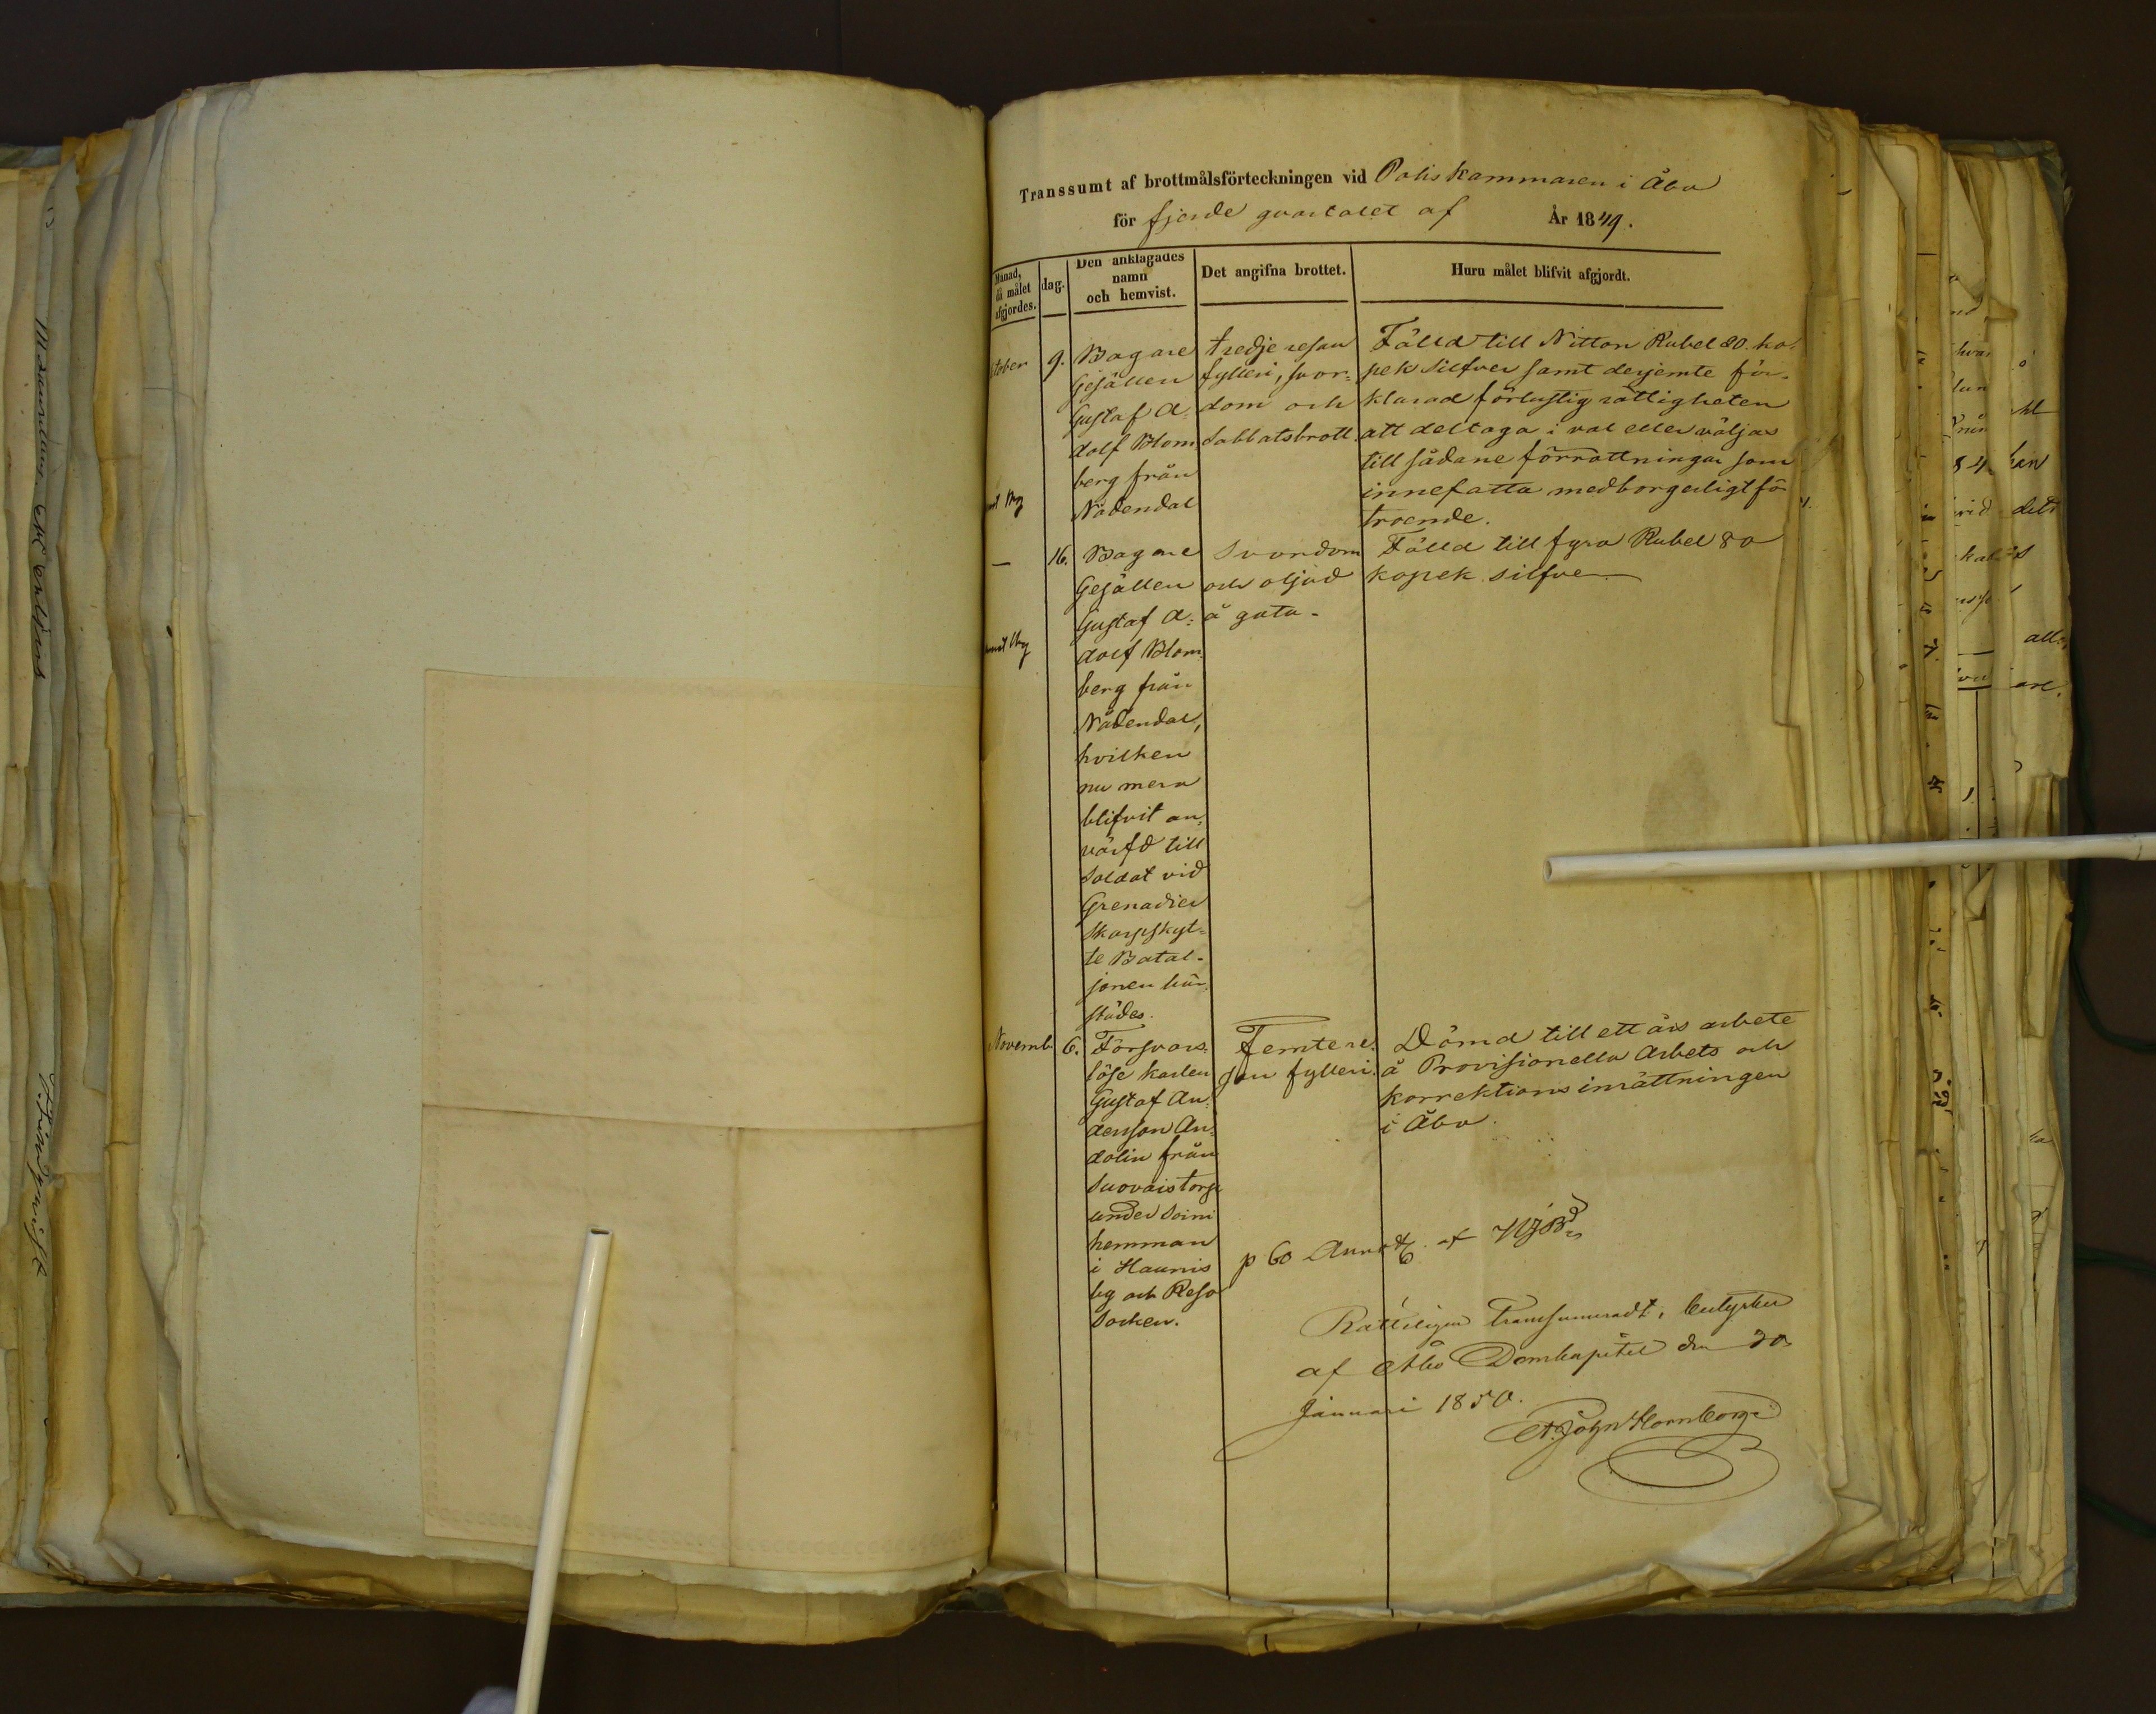 Transsumt af brottmålsförteckningen vid Poliskammaren i Åbo
för fjerde qvartalet af År 1849.
Månad, då målet afgjordes.
dag.
Den anklagades namn och hemvist.
Det angifna brottet.
Huru målet blifvit afgjordt.
tober 9.
Bagare
Gesällen
Gustaf A=
dolf Blom
berg från
Nådendal
tredje resan
fylleri, svor=
dom och
Sabbatsbrott.
Fälld till Nitton Rubel 80. ko=
pek Silfver samt derjemte för=
klarad förlustig rättigheten
att deltaga i val eller väljas
till sådane förrättningar som
innefatta medborgerligt för
troende.
— 16.
Bagare
Gesällen
Gustaf A=
dolf Blom=
berg från
Nådendal,
hvilken
nu mera
blifvit an=
värfd till
Soldat vid
Grenadier
Skarpskyt=
te Batal=
jonen här=
städes.
Svordom
och oljud
å gata.
Fälld till fyra Rubel 80
kopek silfver
Novemb. 6.
Försvars=
löse karlen
Gustaf An=
dersson An=
dolin från
Suovaistorp
under Soini
hemman
i Haunis
by och Reso
Socken.
Femte re=
san fylleri.
Dömd till ett års arbete
å Provisionella Arbets och
korrektions inrättningen
i Åbo.
Rätteligen transsumeradt, betyder
af Åbo Domkapitel den 30
Januari 1850.
A. John Hornborg